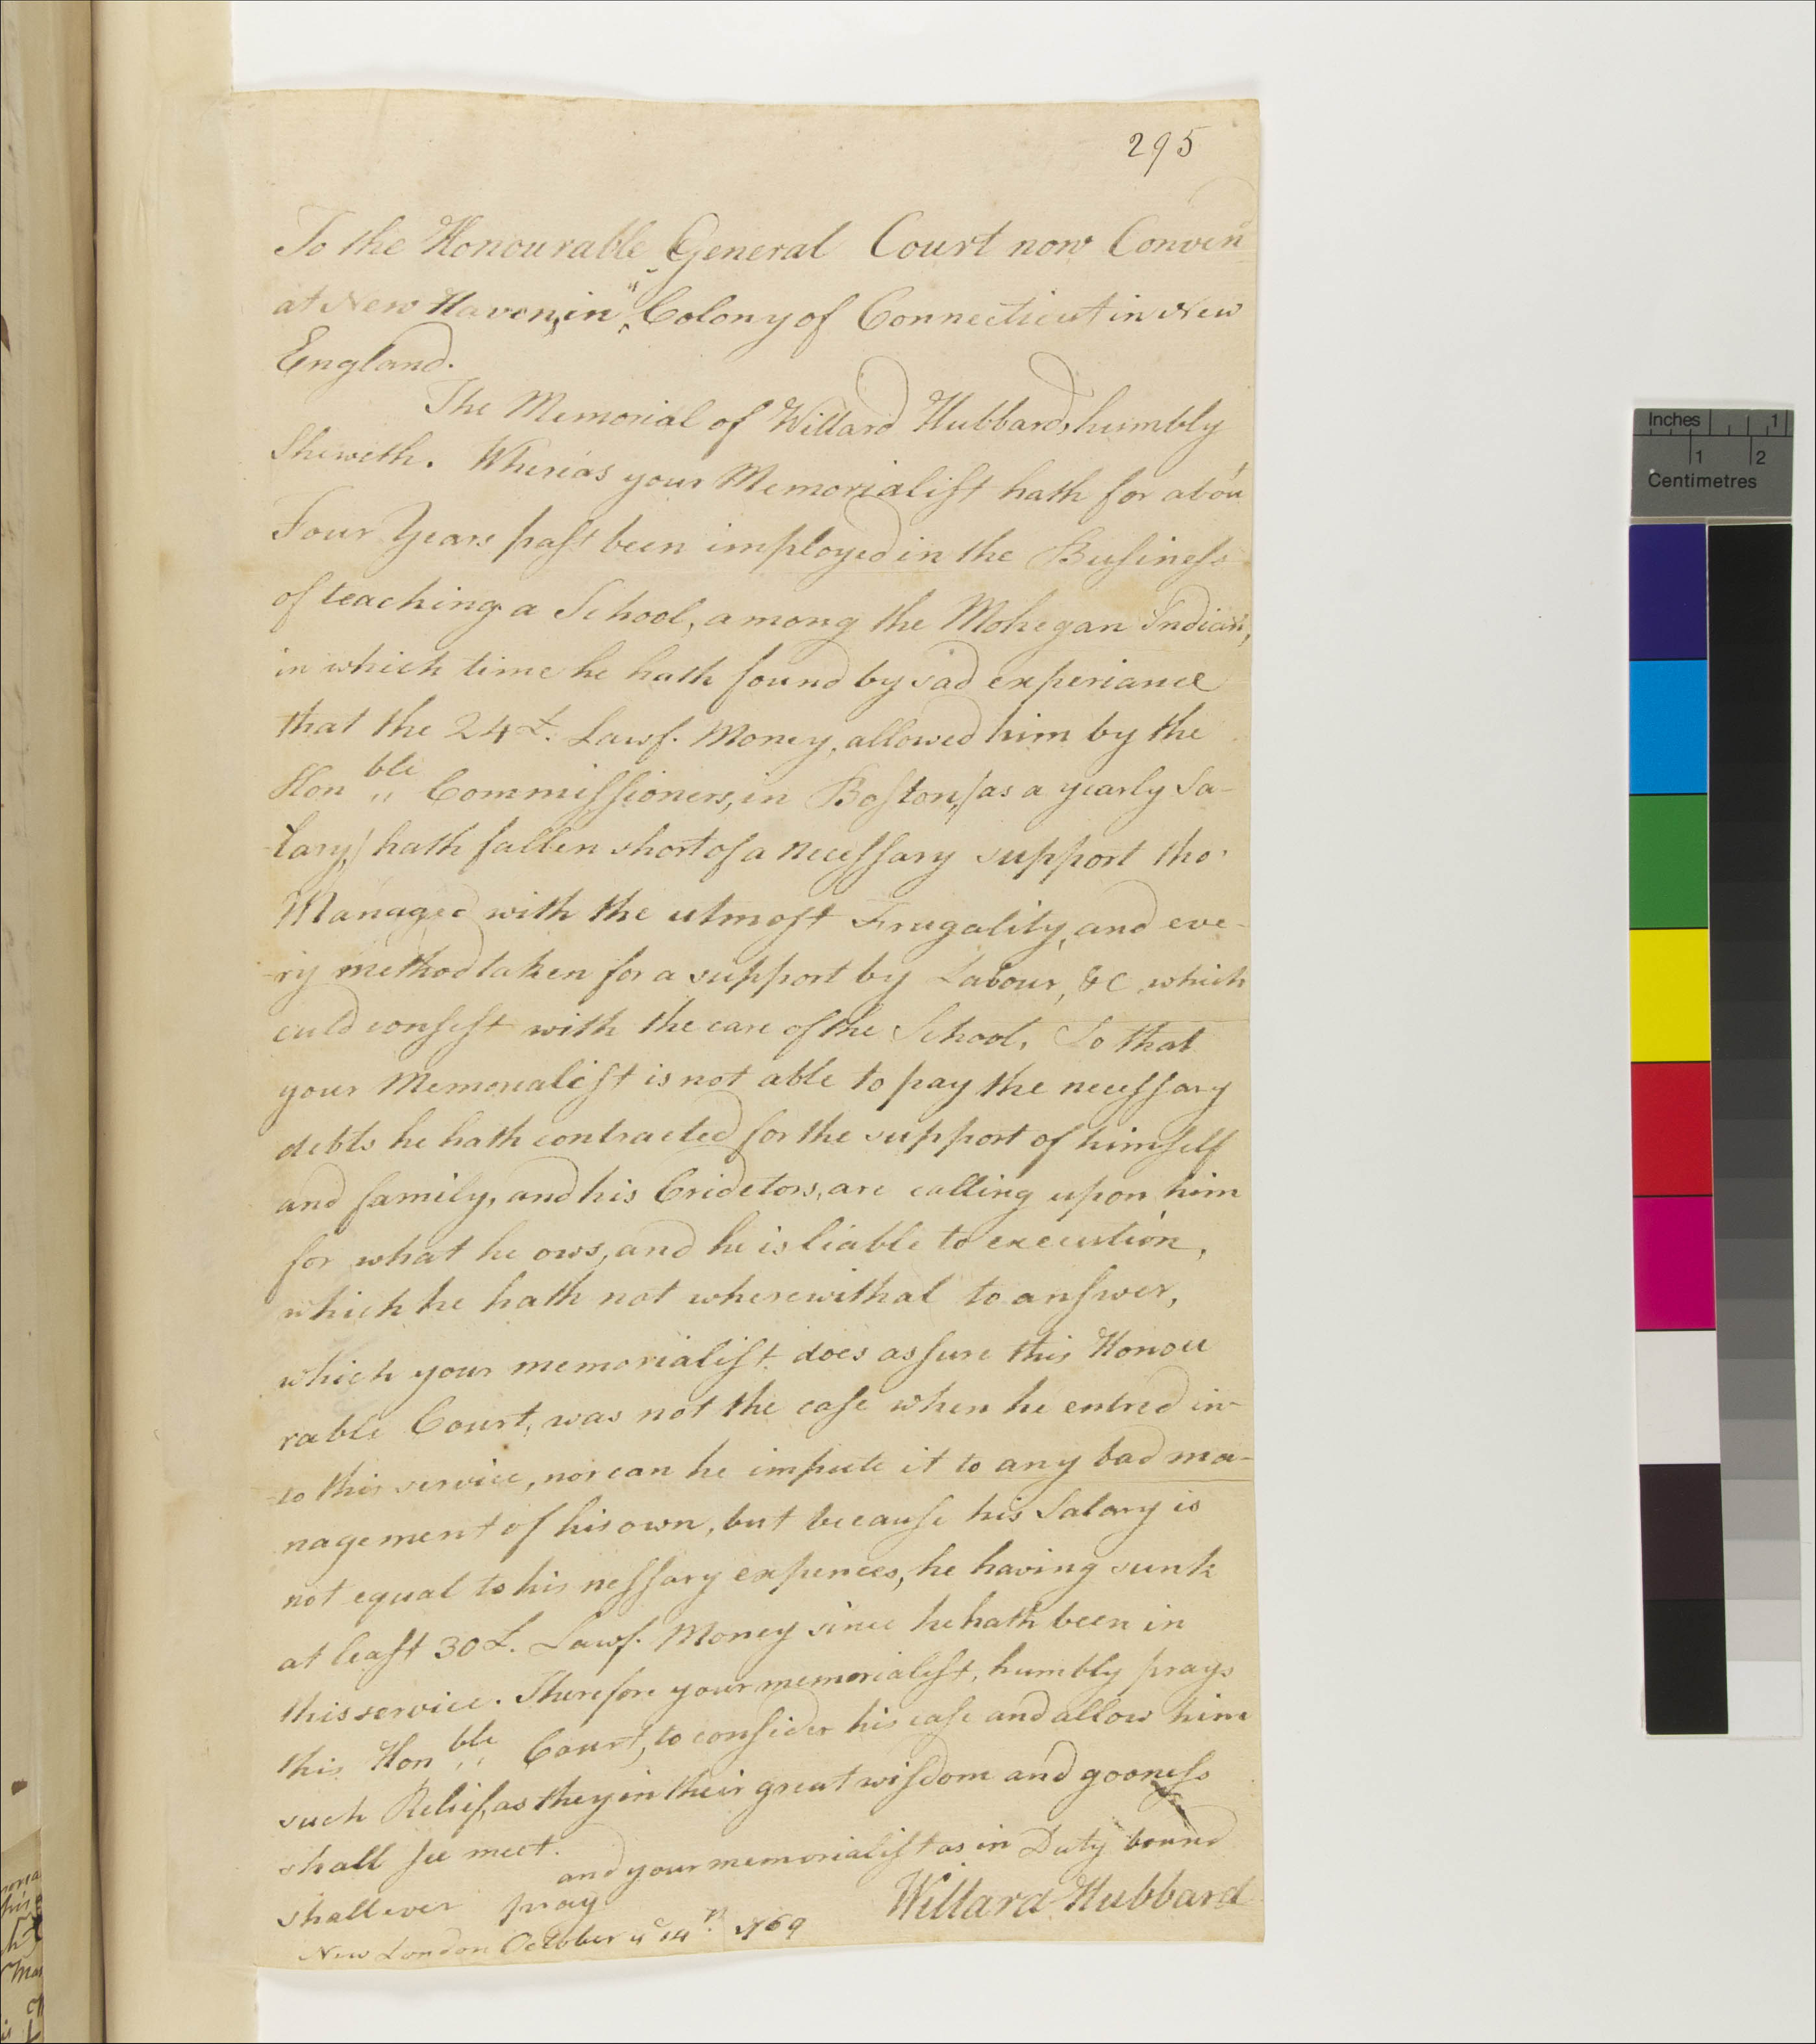 295
To the Honourable General Court now Conven'd
at New Haven, in " Colony of Connecticut in New
England.
The Memorial of Willard Hubbard, humbly
Sheweth. Whereas your Memorialist hath for abou
Four Years past been imployed in the Business
of teaching a School, among the Mohegan Indians,
in which time he hath found by sad experiance
that the 24£. Lawf. Money, allowed him by the
Honble Commissioners, in Boston, /as a yearly Sa-
-lary,/ hath fallen short of a necessary support tho'
Managed with the utmost Frugality, and eve-
-ry method taken for a support by Labour, &c which
culd consist with the care of the School, So that
your Memorialist is not able to pay the necessary
debts he hath contracted for the support of himself
and family, and his Cridetors, are calling upon him
for what he ows, and he is liable to execution,
which he hath not wherewithal to answer,
which your memorialist does assure this Honou
rable Court, was not the case when he entred in-
-to this service, nor can he impute it to any bad ma-
nagement of his own, but because his Salary is
not equal to his nessary expences, he having sunk
at least 30£. Lawf. Money since he hath been in
this service. Therefore your memorialist, humbly prays
this Honble Court, to consider his case and allow him
such Relief, as they in their great wisdom and gooness
shall see meet.
and your memorialist as in Duty bound
shall ever pray
Willard Hubbard
New London October ye 14th 1769
Inches 1
1 2
Centimetres